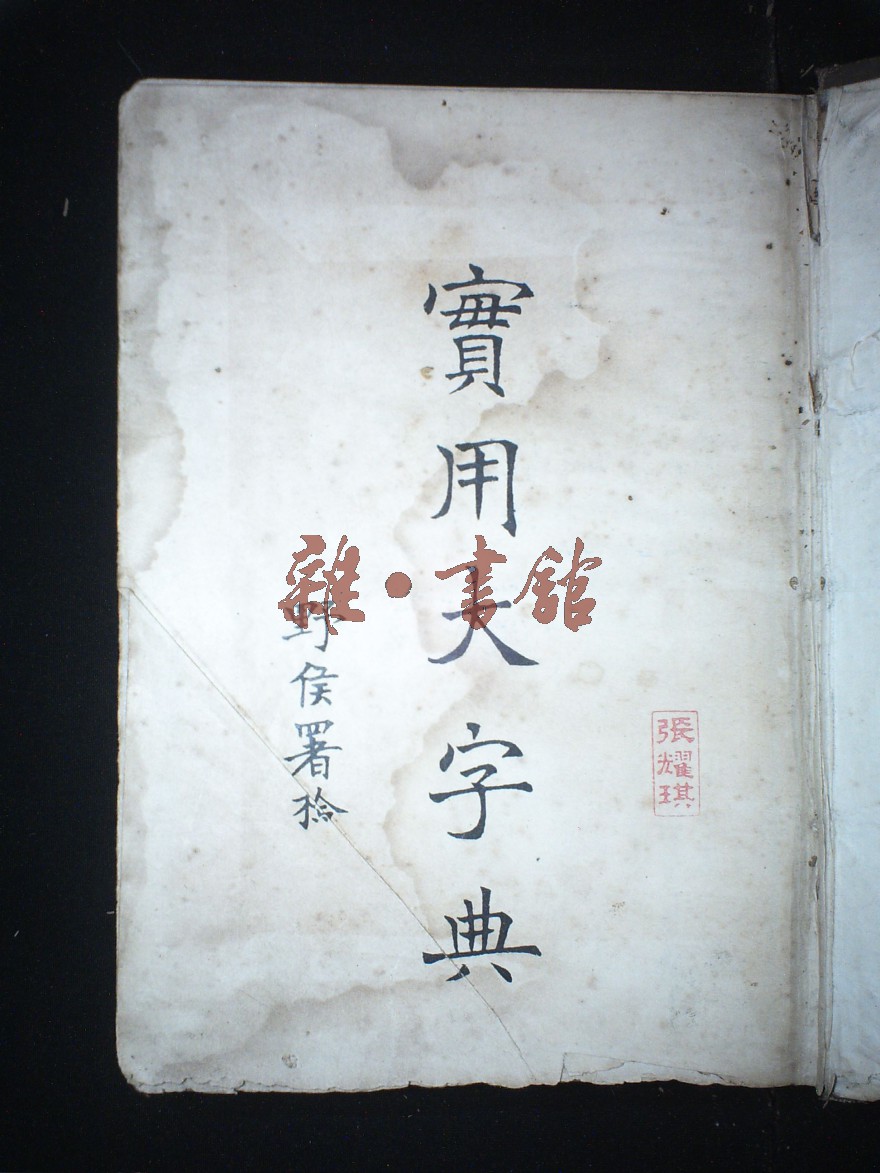 實用大字典
野侯署檢
張耀琪
雜·書館